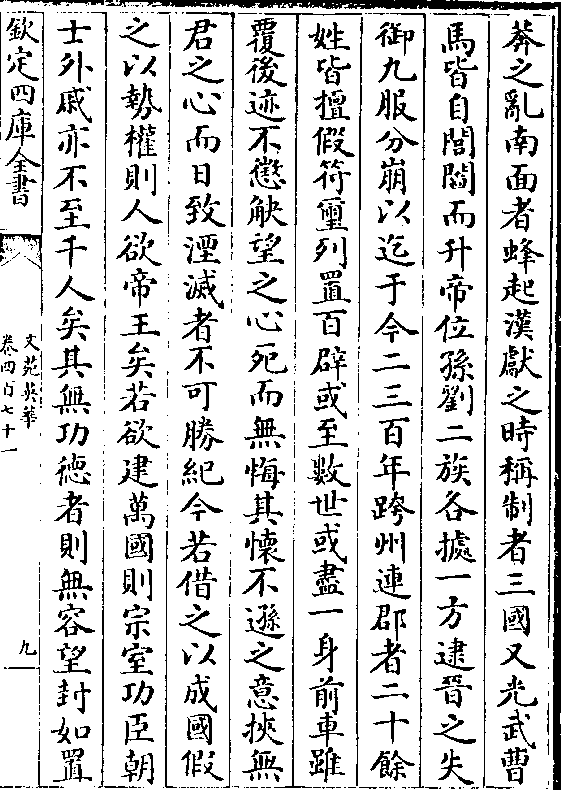 莽之亂南面者蜂起漢獻之時稱制者三國又光武曹
馬皆自閭閻而升帝位孫劉二族各據一方逮晉之失
御九服分崩以迄于今二三百年跨州連郡者二十餘
姓皆擅假符璽列置百辟或至數世或盡一身前車雖
覆後迹不懲觖望之心死而無悔其懷不遜之意挾無
君之心而日致湮滅者不可勝紀今若借之以成國假
之以勢權則人欲帝王矣若欲建萬國則宗室功臣朝
士外戚亦不至千人矣其無功德者則無容望封如置
欽定四庫全書
文苑英華
卷四百七十一
九